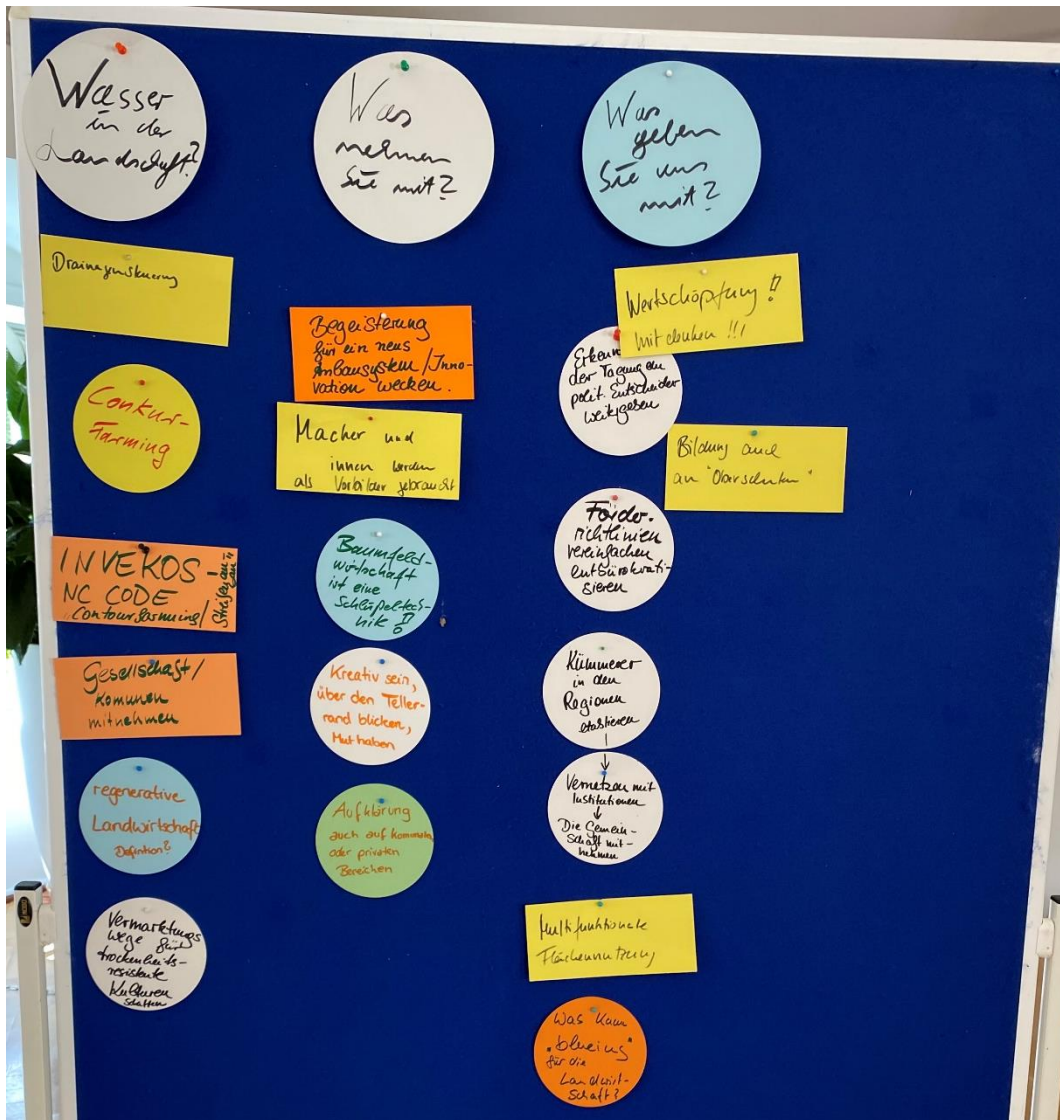 Wasser
in der
Landschaft?
Drainagensteuerung
Conkur-
Farming
INVEKOS
NC CODE
"Contourfarming/
Streifenanbau"!
Gesellschaft/
Kommunen
mitnehmen
regenerative
Landwirtschaft
Definition?
Vermarktungs
wege für
trockenheits-
resistente
Kulturen
schaffen
Was
nehmen
Sie mit?
Begeisterung
für ein neues
Anbausystem/Inno-
vation wecken.
Macher und
innen werden
als Vorbilder gebraucht
Baumfeld-
wirtschaft
ist eine
Schlüsseltech-
nik !!
Kreativ sein,
über den Teller-
rand blicken,
Mut haben
Aufklärung
auch auf
oder privaten
Bereichen
Was
geben
Sie uns
mit?
Wertschöpfung !!
mitdenken !!!
der Tagung an
polit. Entscheider
weitergeben
Bildung auch
an "Oberschulen"
Förder-
richtlinien
vereinfachen
entbürokrati-
sieren
Kümmerer
in den
Regionen
etablieren
Vernetzen mit
Institutionen
Die Gemein-
schaft mit-
nehmen
Multifunktionale
Flächennutzung
Was kann
"blueing"
für die
Landwirt-
schaft?